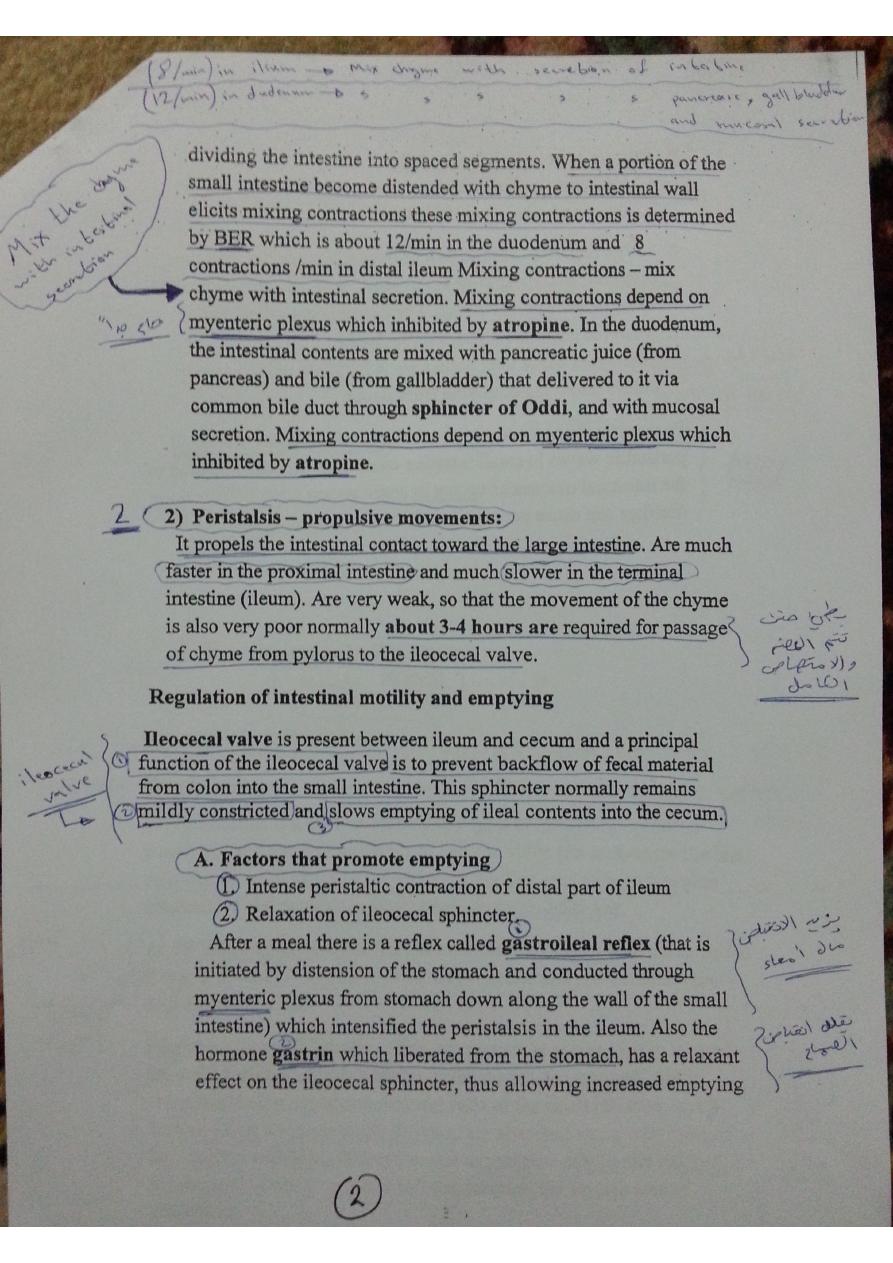 (8/min) in ilium → Mix chyme with secretion of intestine
(12/min) in dudenum → s s s s s pancreatic, gall bladder
and mucosal secretion
dividing the intestine into spaced segments. When a portion of the
small intestine become distended with chyme to intestinal wall
elicits mixing contractions these mixing contractions is determined
by BER which is about 12/min in the duodenum and 8
contractions /min in distal ileum Mixing contractions – mix
chyme with intestinal secretion. Mixing contractions depend on
myenteric plexus which inhibited by atropine. In the duodenum,
the intestinal contents are mixed with pancreatic juice (from
pancreas) and bile (from gallbladder) that delivered to it via
common bile duct through sphincter of Oddi, and with mucosal
secretion. Mixing contractions depend on myenteric plexus which
inhibited by atropine.
Mix the chyme
with intestinal
secretion
2
2) Peristalsis – propulsive movements:
It propels the intestinal contact toward the large intestine. Are much
faster in the proximal intestine and much slower in the terminal
intestine (ileum). Are very weak, so that the movement of the chyme
is also very poor normally about 3-4 hours are required for passage
of chyme from pylorus to the ileocecal valve.
حتى
تتم الهضم
والامتصاص
الكامل
Regulation of intestinal motility and emptying
Ileocecal valve is present between ileum and cecum and a principal
① function of the ileocecal valve is to prevent backflow of fecal material
from colon into the small intestine. This sphincter normally remains
② mildly constricted and slows emptying of ileal contents into the cecum.
③
ileocecal
valve
A. Factors that promote emptying
1. Intense peristaltic contraction of distal part of ileum
2. Relaxation of ileocecal sphincter.
①
After a meal there is a reflex called gastroileal reflex (that is
initiated by distension of the stomach and conducted through
myenteric plexus from stomach down along the wall of the small
intestine) which intensified the peristalsis in the ileum. Also the
②
hormone gastrin which liberated from the stomach, has a relaxant
effect on the ileocecal sphincter, thus allowing increased emptying
يزيد الانقباض
مال امعاء
تقلل انقباض
الصمام
2